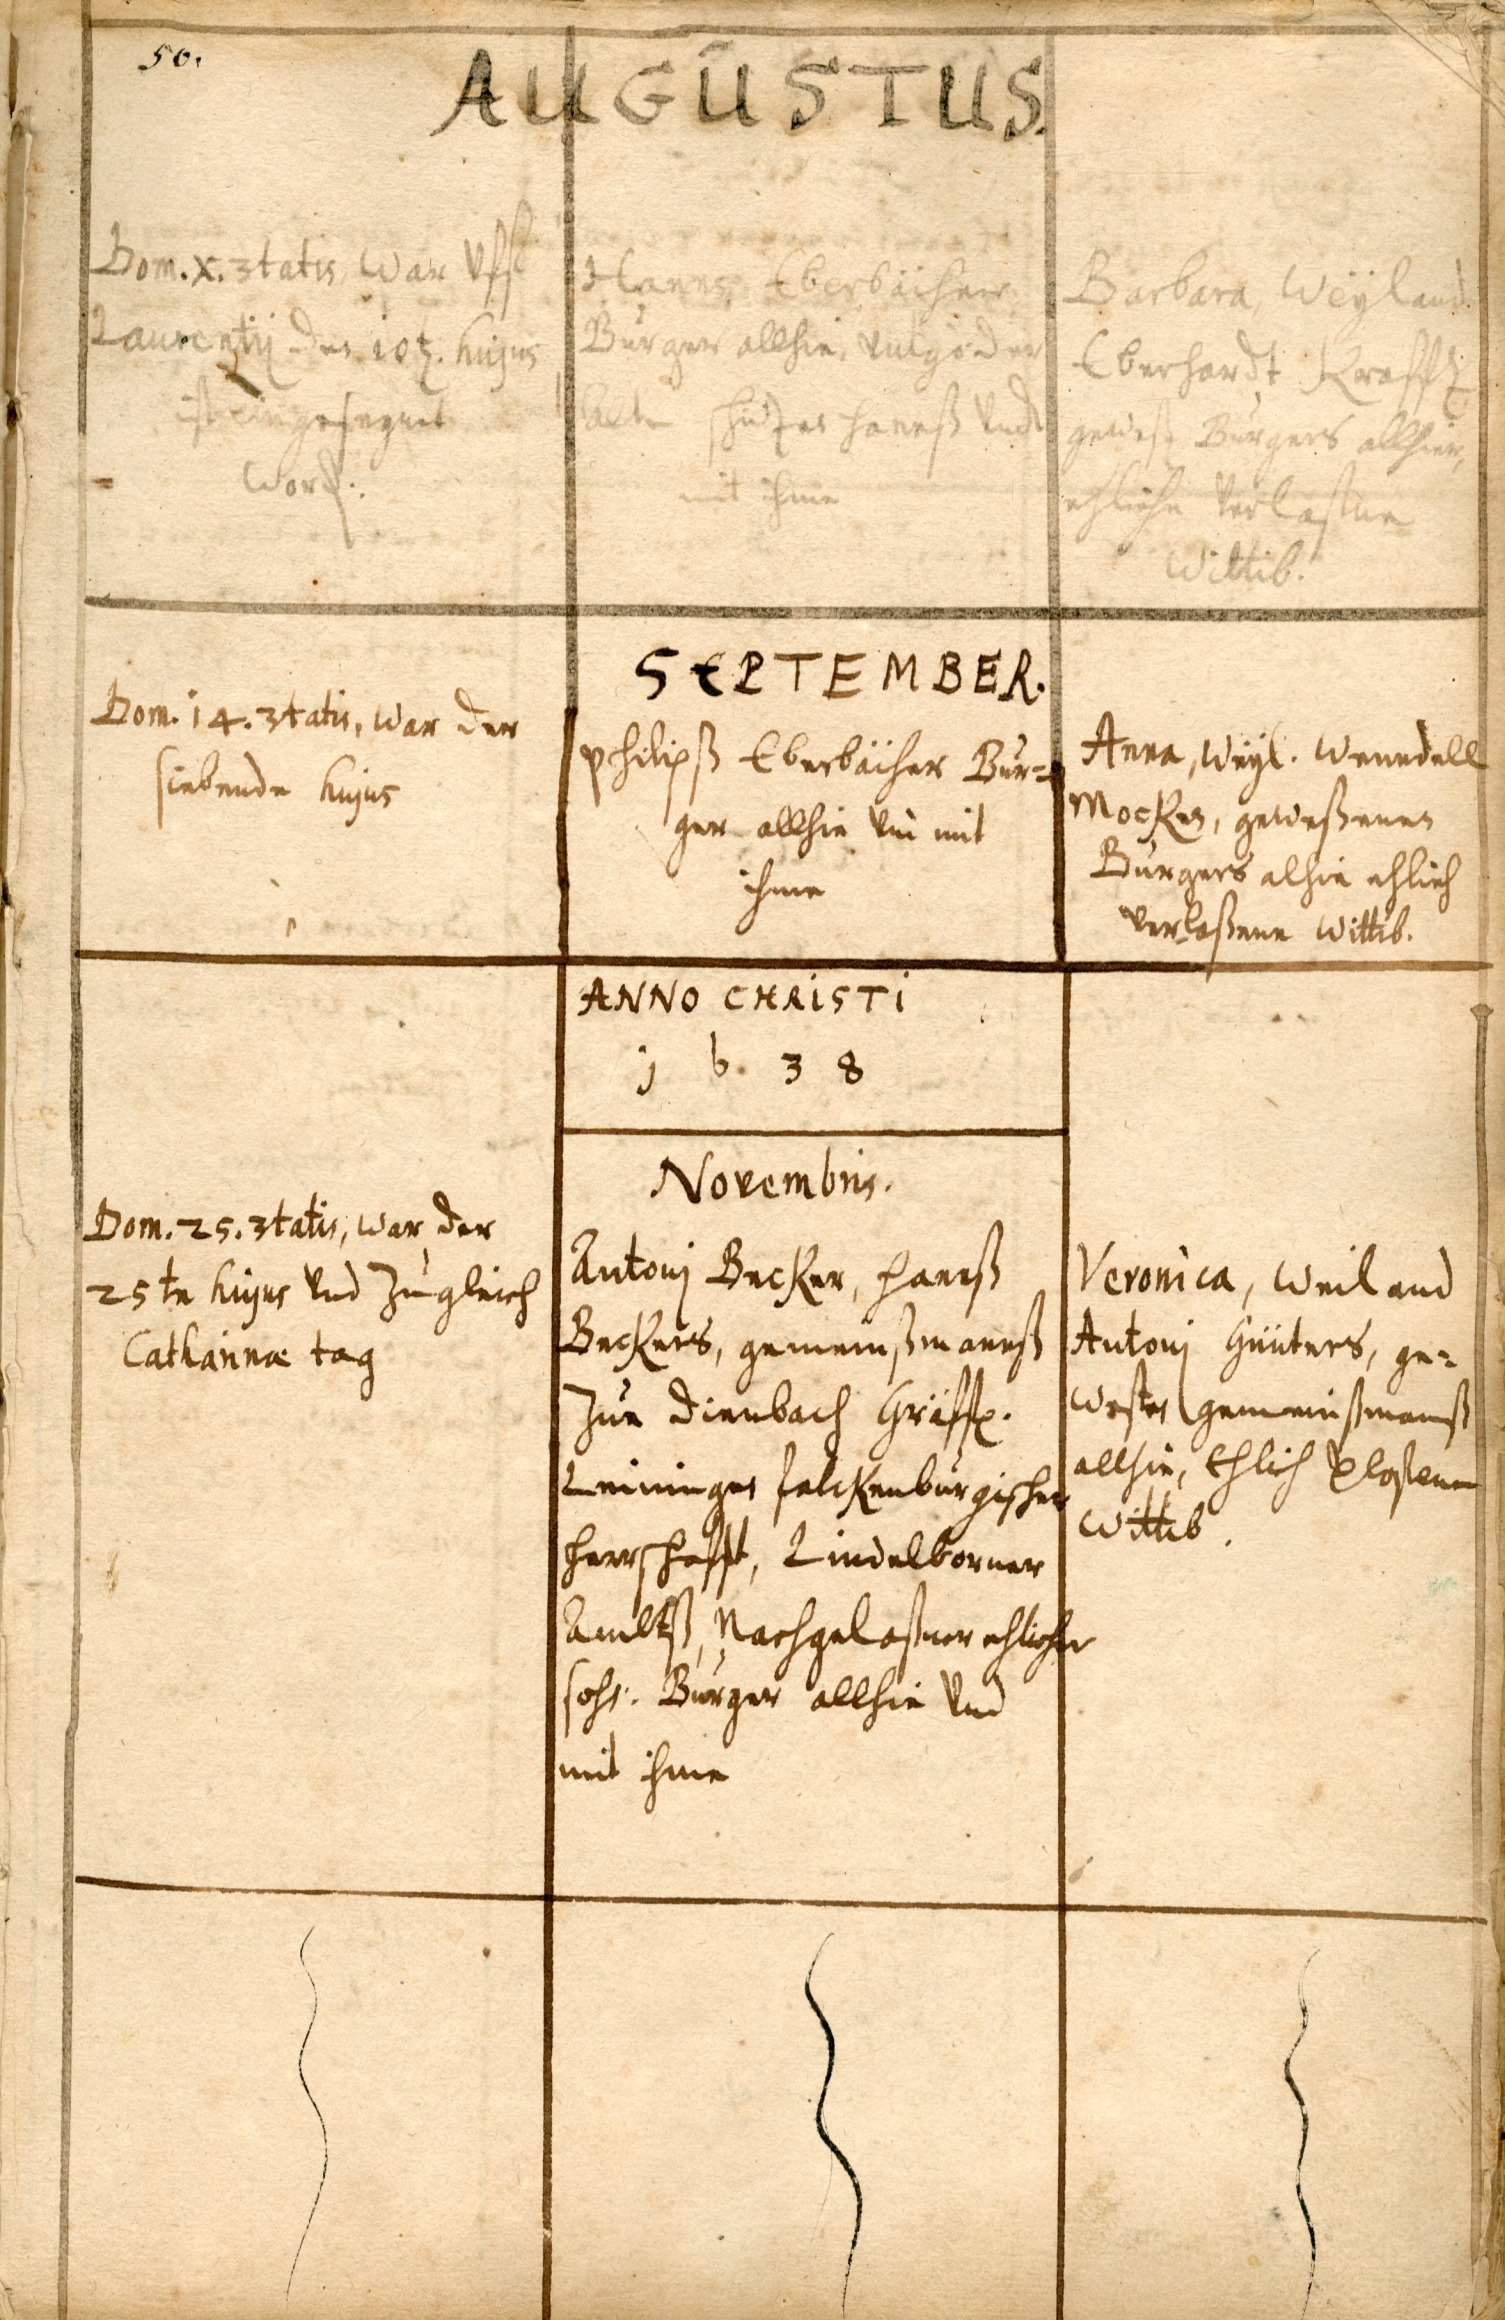 50.
AUGUSTUS.
Dom. X. 3tatis, war vff
Laurentij den 10t. hujus
ist eingesegnet
word.
Hanns Eberbächer
Burger allhie, vulgo der
alte hanß vndt
mit ihme
Barbara, Weyland
Eberhardt Krafft
geweß Burgers allhier,
ehliche verlaßne
Wittib.
SEPTEMBER.
Dom. 14. 3tatis, war der
siebende hujus
Philipß Eberbächer Bur=
ger allhie vn mit
ihme
Anna, Weyl. Wenndell
Mocken, geweßenen
Burgers alhie ehlich
verlaßene Wittib.
ANNO CHRISTI
1 6. 3 8
Novembris.
Dom. 25. 3tatis, war der
25te hujus vnd zugleich
Catharinæ tag
Antonj Becker, hanß
Beckers, gemeinßmanß
zue Dienbach Gräffl.
Leininger falckenburgischer
herrschafft, Lindelborner
Ambtß, Nachgelaßner ehlicher
sohn. Burger allhie vnd
mit ihme
Veronica, Weiland
Antonj Günters, ge=
westen gemeinßmanß
allhie, Ehlich vlaßene
Wittib.